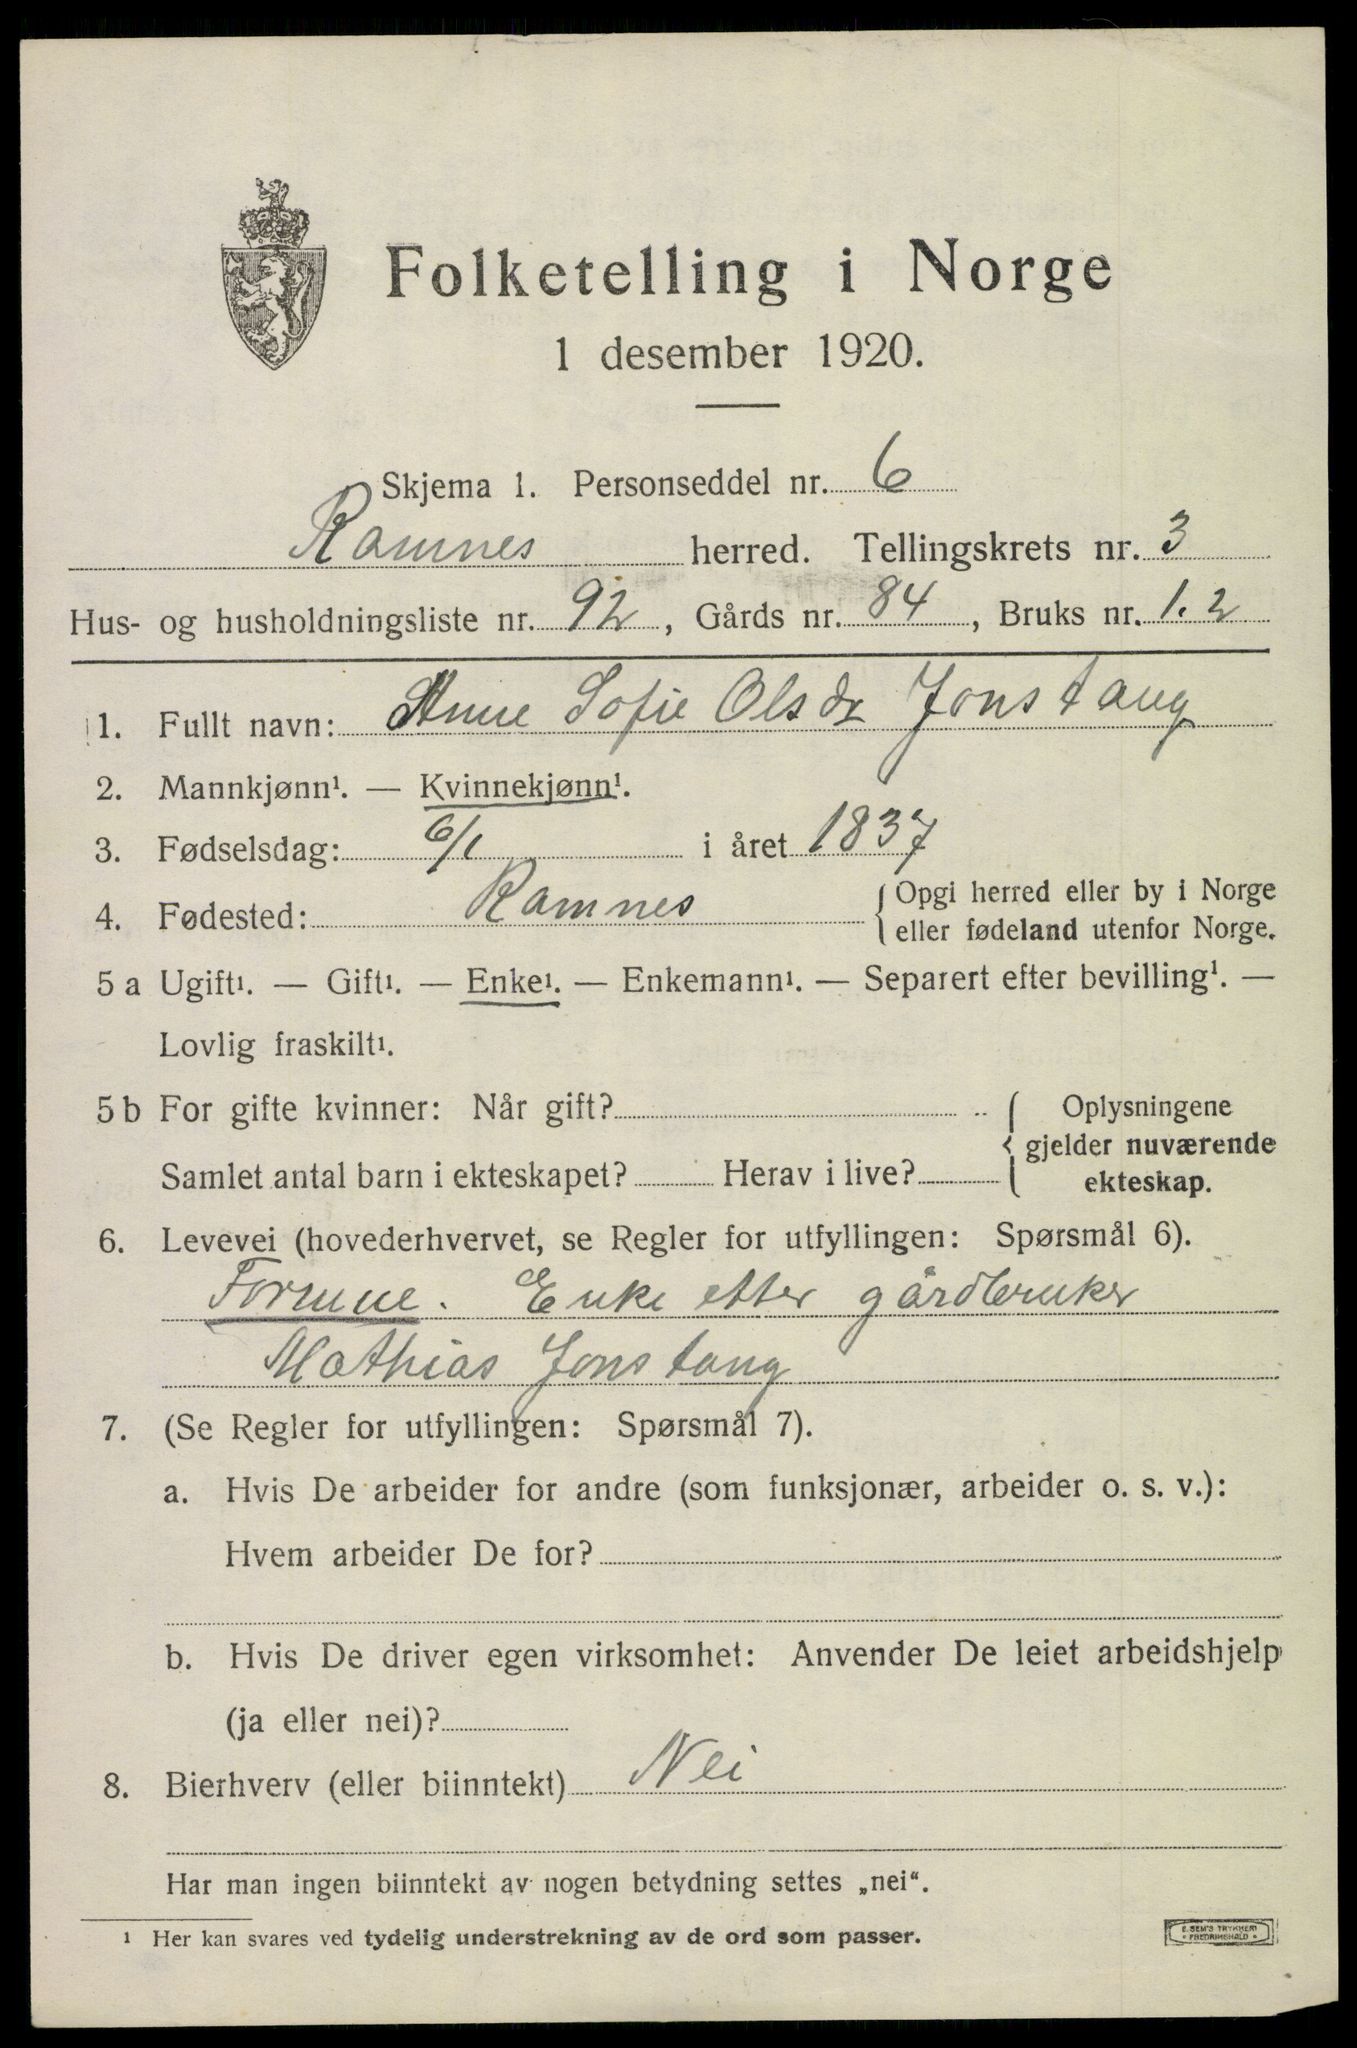 Folketelling i Norge
1 desember 1920.
Skjema 1. Personseddel nr. 6
Ramnes herred. Tellingskrets nr. 3
Hus- og husholdningsliste nr. 92, Gårds nr. 84, Bruks nr. 1.2
1. Fullt navn: Anne Sofie Olsdr Jonstang
2. Mannkjønn¹. — Kvinnekjønn¹.
3. Fødselsdag: 6/1 i året 1837
4. Fødested: Ramnes { Opgi herred eller by i Norge
eller fødeland utenfor Norge.
5 a Ugift¹. — Gift¹. — Enke¹. — Enkemann¹. — Separert efter bevilling¹. —
Lovlig fraskilt¹.
5 b For gifte kvinner: Når gift? { Oplysningene
gjelder nuværende
Samlet antal barn i ekteskapet? Herav i live? ekteskap.
6. Levevei (hovederhvervet, se Regler for utfyllingen: Spørsmål 6).
Formue. Enke etter gårdbruker
Mathias Jonstang
7. (Se Regler for utfyllingen: Spørsmål 7).
a. Hvis De arbeider for andre (som funksjonær, arbeider o. s. v.):
Hvem arbeider De for?
b. Hvis De driver egen virksomhet: Anvender De leiet arbeidshjelp
(ja eller nei)?
8. Bierhverv (eller biinntekt) Nei
Har man ingen biinntekt av nogen betydning settes „nei“.
¹ Her kan svares ved tydelig understrekning av de ord som passer.
E. SEM'S TRYKKERI
FREDRIKSHALD